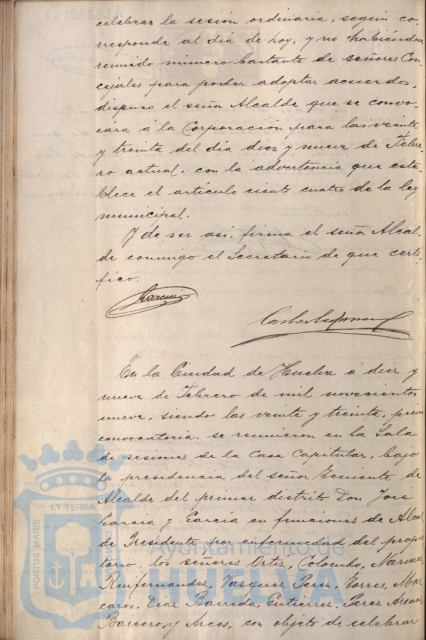 celebrar la sesión ordinaria, según co-
rresponde al día de hoy, y no habiéndose
reunido número bastante de señores Con-
cejales para poder adoptar acuerdos,
dispuso el señor Alcalde que se convo-
cara á la Corporación para las veinte
y treinta del día diez y nueve de Febre-
ro actual, con la advertencia que esta-
blece el artículo ciento cuatro de la ley
municipal.
Y de ser así, firma el señor Alcal-
de conmigo el Secretario de que certi-
fico.
Garcia
En la Ciudad de Huelva á diez y
nueve de Febrero de mil novecientos
nueve, siendo las veinte y treinta, previa
convocatoria, se reunieron en la Sala
de sesiones de la Casa Capitular, bajo
la presidencia del señor Teniente de
Alcalde del primer distrito Don José
Garcia y Garcia en funciones de Alcal-
de Presidente por enfermedad del propie-
tario, los señores Ortiz, Colombo, Narvaez,
Vazquez Torres,
Diaz Barreda, Gutierrez, Perez
Barrero, y Arcos, con objeto de celebrar
PORTUS MARIS ET TERRA
Ayuntamiento de
HUELVA